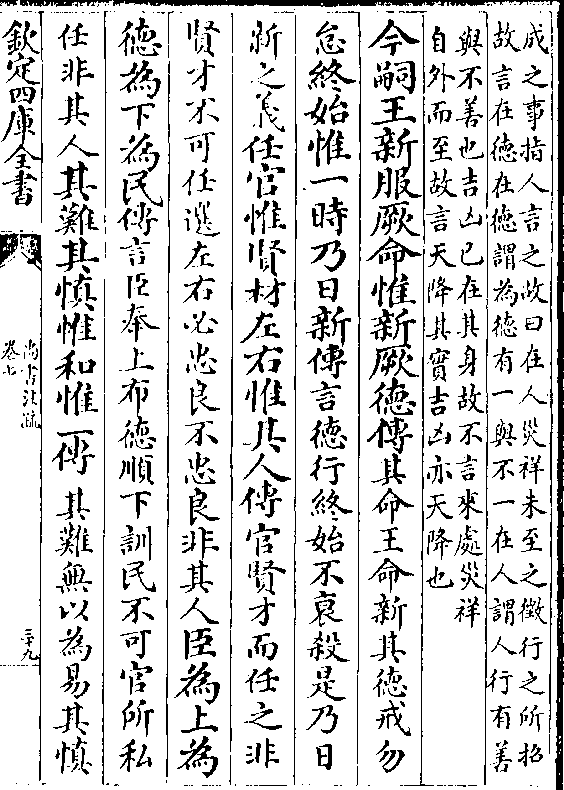 成之事指人言之故曰在人災祥未至之徵行之所招
故言在德在德謂為德有一與不一在人謂人行有善
與不善也吉凶已在其身故不言來處災祥
自外而至故言天降其實吉凶亦天降也
今嗣王新服厥命惟新厥德傳其命王命新其德戒勿
怠終始惟一時乃日新傳言德行終始不衰殺是乃日
新之義任官惟賢材左右惟其人傳官賢才而任之非
賢才不可任選左右必忠良不忠良非其人臣為上為
德為下為民傳言臣奉上布德順下訓民不可官所私
任非其人其難其慎惟和惟一傳其難無以為易其慎
欽定四庫全書
尚書注疏
卷七
三十九